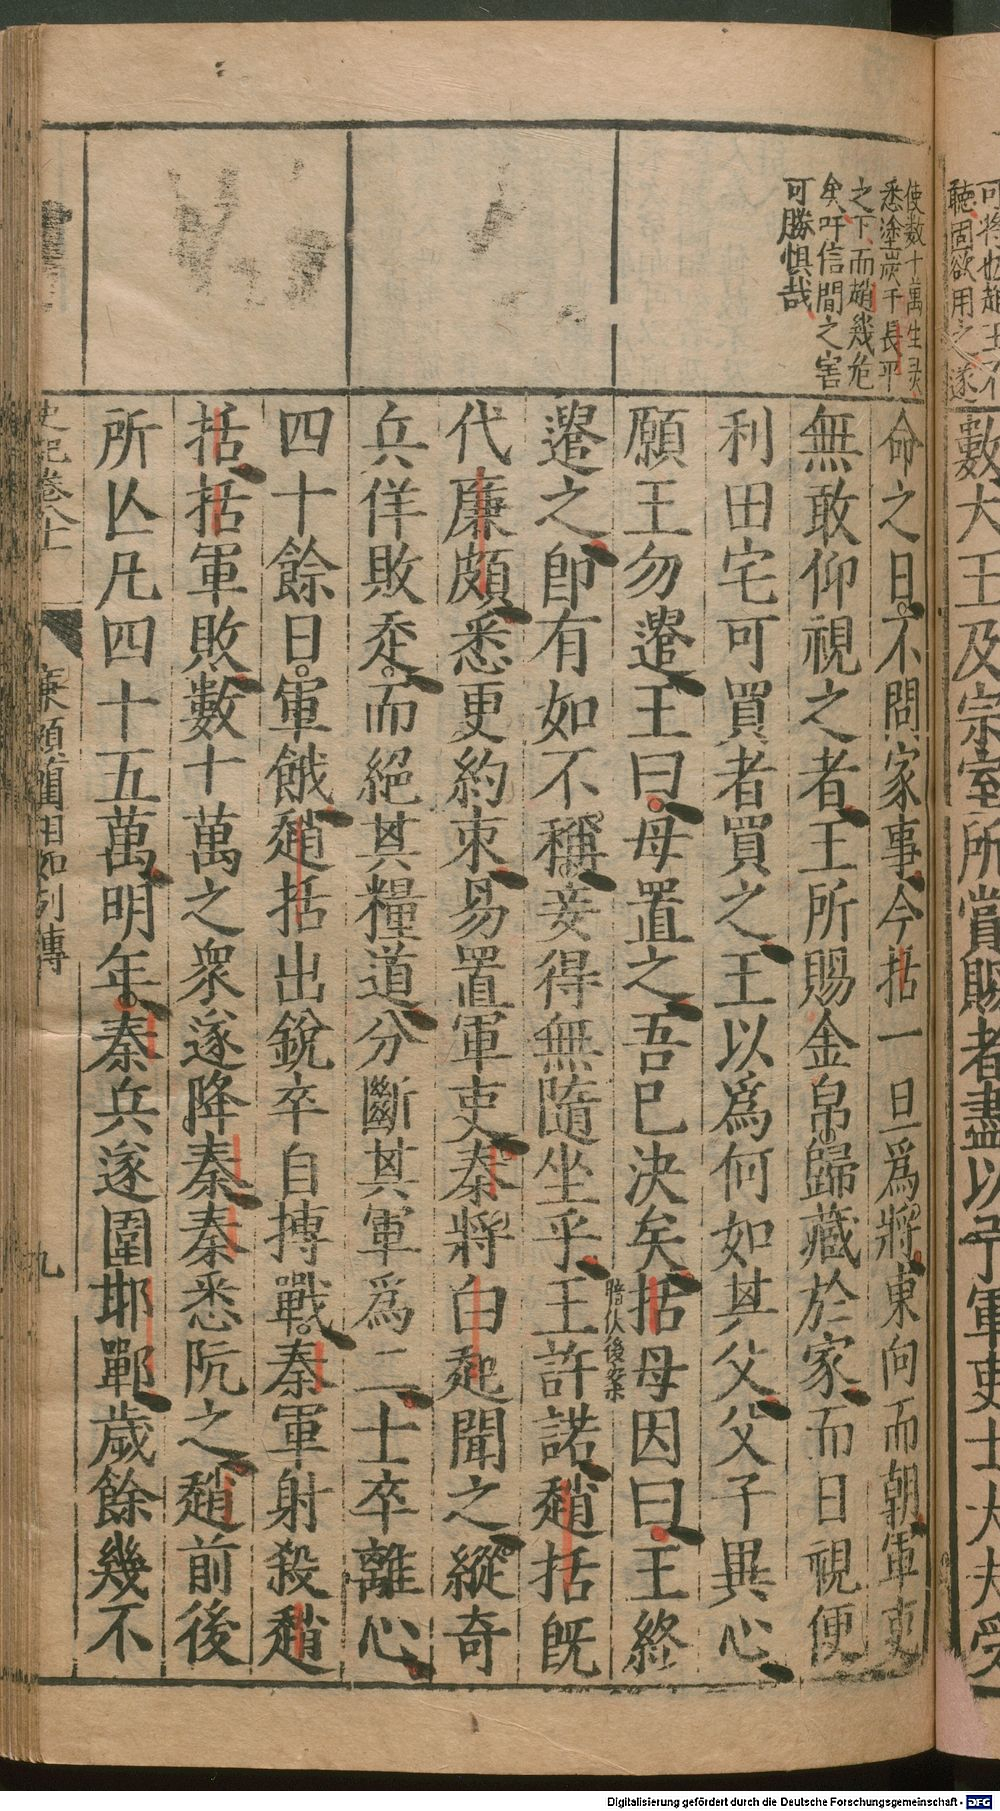 可將也趙王不
聽固欲用之遂
數大王及宗室所賞賜者盡以予軍吏士大夫受
使數十萬生灵
悉塗炭于長平
之下而趙幾危
矣吁信間之害
可勝惧哉
命之日不問家事今括一旦爲將東向而朝軍吏
無敢仰視之者王所賜金帛歸藏於家而日視便
利田宅可買者買之王以爲何如其父父子異心
願王勿遣王曰母置之吾已決矣括母因曰王終
暗伏後案
遣之卽有如不稱妾得無隨坐乎王許諾趙括旣
代廉頗悉更約束易置軍吏秦將白起聞之縱奇
兵佯敗走而絕其糧道分斷其軍爲二士卒離心
四十餘日軍餓趙括出銳卒自搏戰秦軍射殺趙
括括軍敗數十萬之衆遂降秦秦悉阬之趙前後
所亾凡四十五萬明年秦兵遂圍邯鄲歲餘幾不
史記卷八十一 廉頗藺相如列傳 九
Digitalisierung gefördert durch die Deutsche Forschungsgemeinschaft - DFG